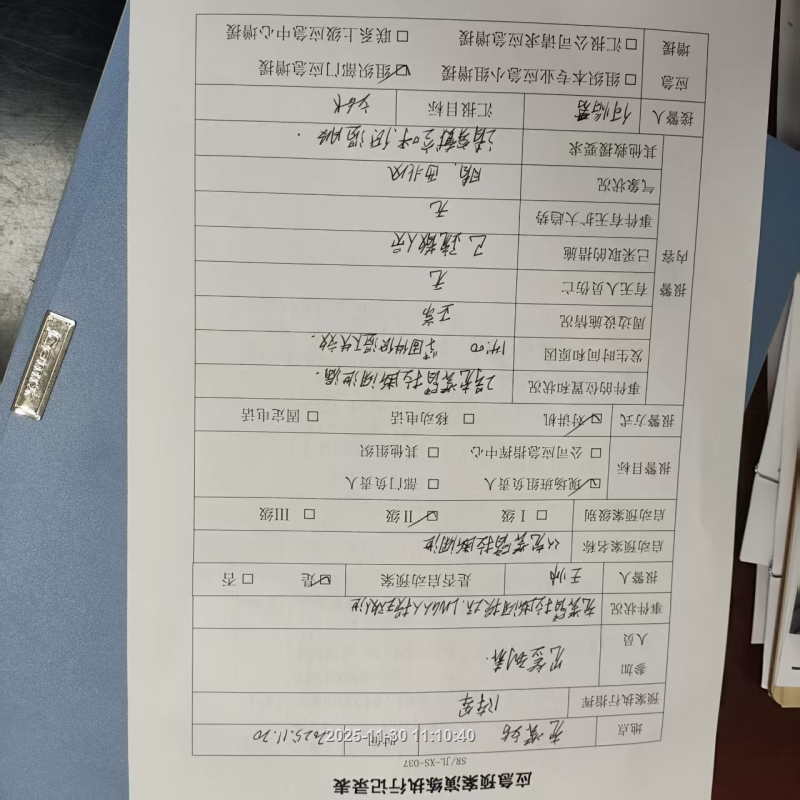 应急预案演练执行记录表
SR/JL-XS-037
地点 充装站 时间 2025.11.20
预案执行指挥
参加人员 见签到表
事件状况 充装臂拉断阀损坏,LNG大量泄
报警人 王帅 是否启动预案 ☑是 □否
启动预案名称 充装臂拉断阀泄
启动预案级别 □Ⅰ级 ☑Ⅱ级 □Ⅲ级
报警目标 ☑现场班组负责人 □部门负责人
□公司应急指挥中心 □其他组织
报警方式 ☑对讲机 □移动电话 □固定电话
报警内容
事件的位置和状况 2号充装臂拉断阀泄漏。
发生时间和原因 14:00 紧固件低温下失效。
周边设施情况 正常
有无人员伤亡 无
已采取的措施 已疏散人员
事件有无扩大趋势 无
气象状况 阴,西北风
其他救援要求
接警人 汇报目标
应急增援 □组织本专业应急小组增援 ☑组织部门应急增援
□汇报公司请求应急增援 □联系上级应急中心增援
2025-11-30 11:10:40